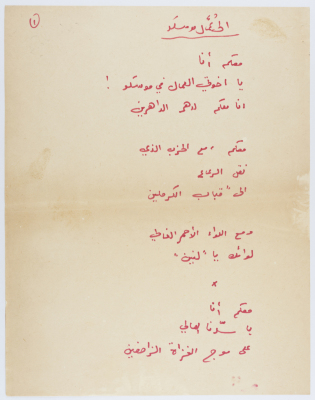 (١)
إلى عمال موسكو
معكم أنا
يا اخوتي العمال في موسكو !
انا معكم لدهر الداهرين
معكم، مع الحزب الذي
نقل الرعاع
الى "قباب الكرملين
ومع اللواء الأحمر القاني
لوائك يا "لنين"
*
معكم أنا
يا سدّنا العالي
على موج الغزاة الزاحفين